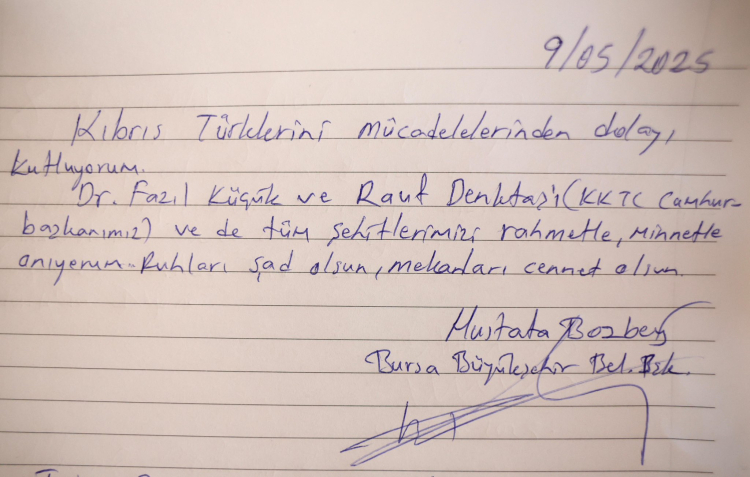 9/05/2025
Kıbrıs Türklerini mücadelelerinden dolayı
kutluyorum.
Dr. Fazıl Küçük ve Rauf Denktaş'ı (KKTC Cumhur-
başkanımız) ve de tüm şehitlerimizi rahmetle, minnetle
anıyorum. Ruhları şad olsun, mekanları cennet olsun.
Mustafa Bozbey
Bursa Büyükşehir Bel. Bşk.